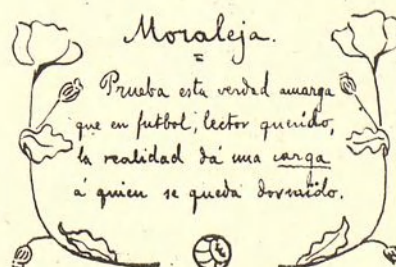 Moraleja.
Prueba esta verdad amarga
que en futbol, lector querido,
la realidad dá una carga
á quien se queda dormido.